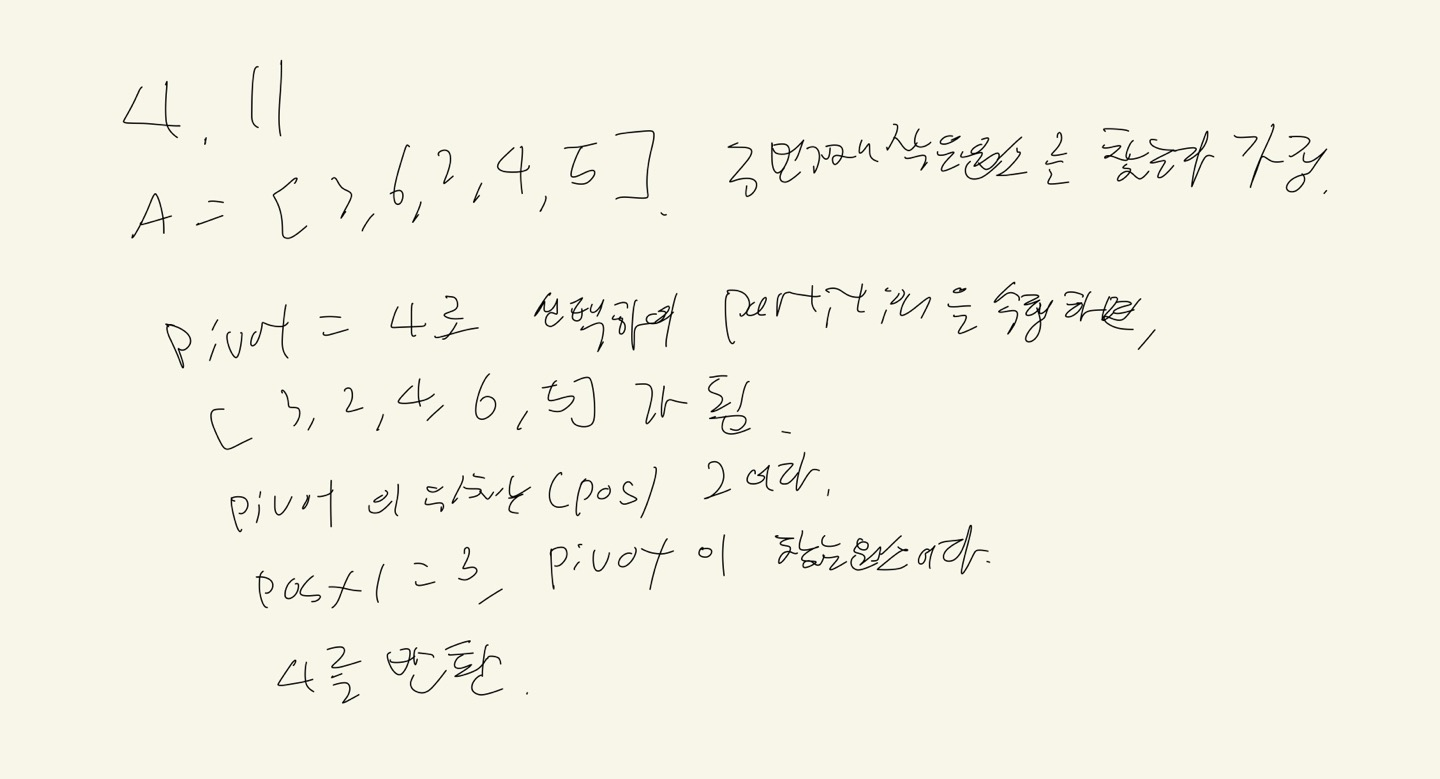 4.11
A = [3, 6, 2, 4, 5]. 3번째 작은원소를 찾는다 가정.
pivot = 4로 선택하여 partition을 수행하면,
[3, 2, 4, 6, 5]가 됨.
pivot의 위치는 (pos) 2이다.
pos+1 = 3, pivot이 찾는원소이다.
4를 반환.